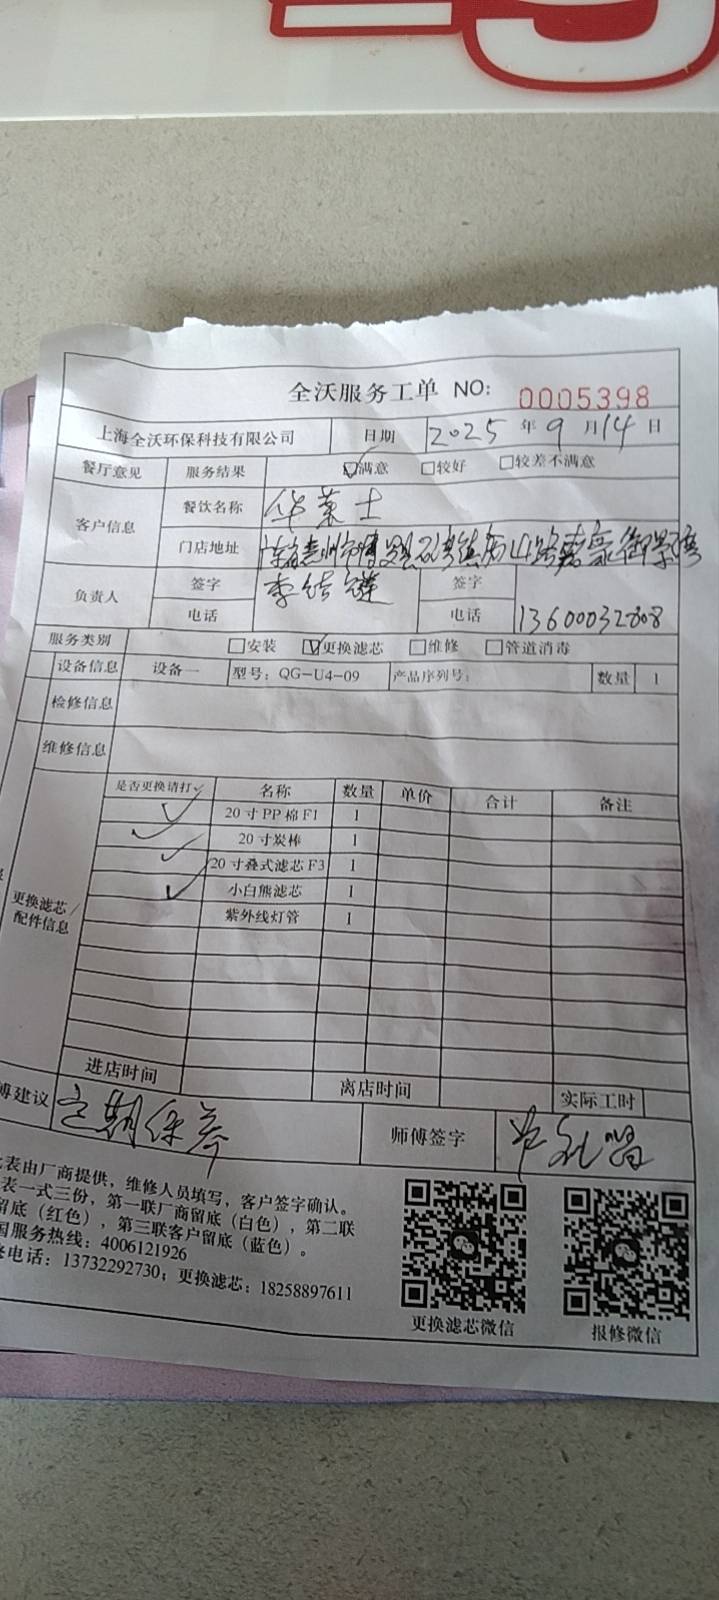 全沃服务工单 NO: 0005398
上海全沃环保科技有限公司 日期 2025 年 9 月 14 日
餐厅意见 服务结果 ☑满意 □较好 □较差不满意
客户信息 餐饮名称 华莱士
门店地址 广东省惠州市博罗县石湾镇 山路 豪御景湾
负责人 签字 李 莲 签字
电话 电话 13600032808
服务类别 □安装 ☑更换滤芯 □维修 □管道消毒
设备信息 设备一 型号: QG-U4-09 产品序列号: 数量 1
检修信息
维修信息
更换滤芯/配件信息
是否更换请打✓ 名称 数量 单价 合计 备注
✓ 20寸PP棉F1 1
✓ 20寸炭棒 1
✓ 20寸叠式滤芯F3 1
✓ 小白熊滤芯 1
紫外线灯管 1
进店时间 离店时间 实际工时
傅建议 定期保养 师傅签字
表由厂商提供，维修人员填写，客户签字确认。
表一式三份，第一联厂商留底（白色），第二联
留底（红色），第三联客户留底（蓝色）。
国服务热线：4006121926
电话：13732292730；更换滤芯：18258897611
更换滤芯微信 报修微信